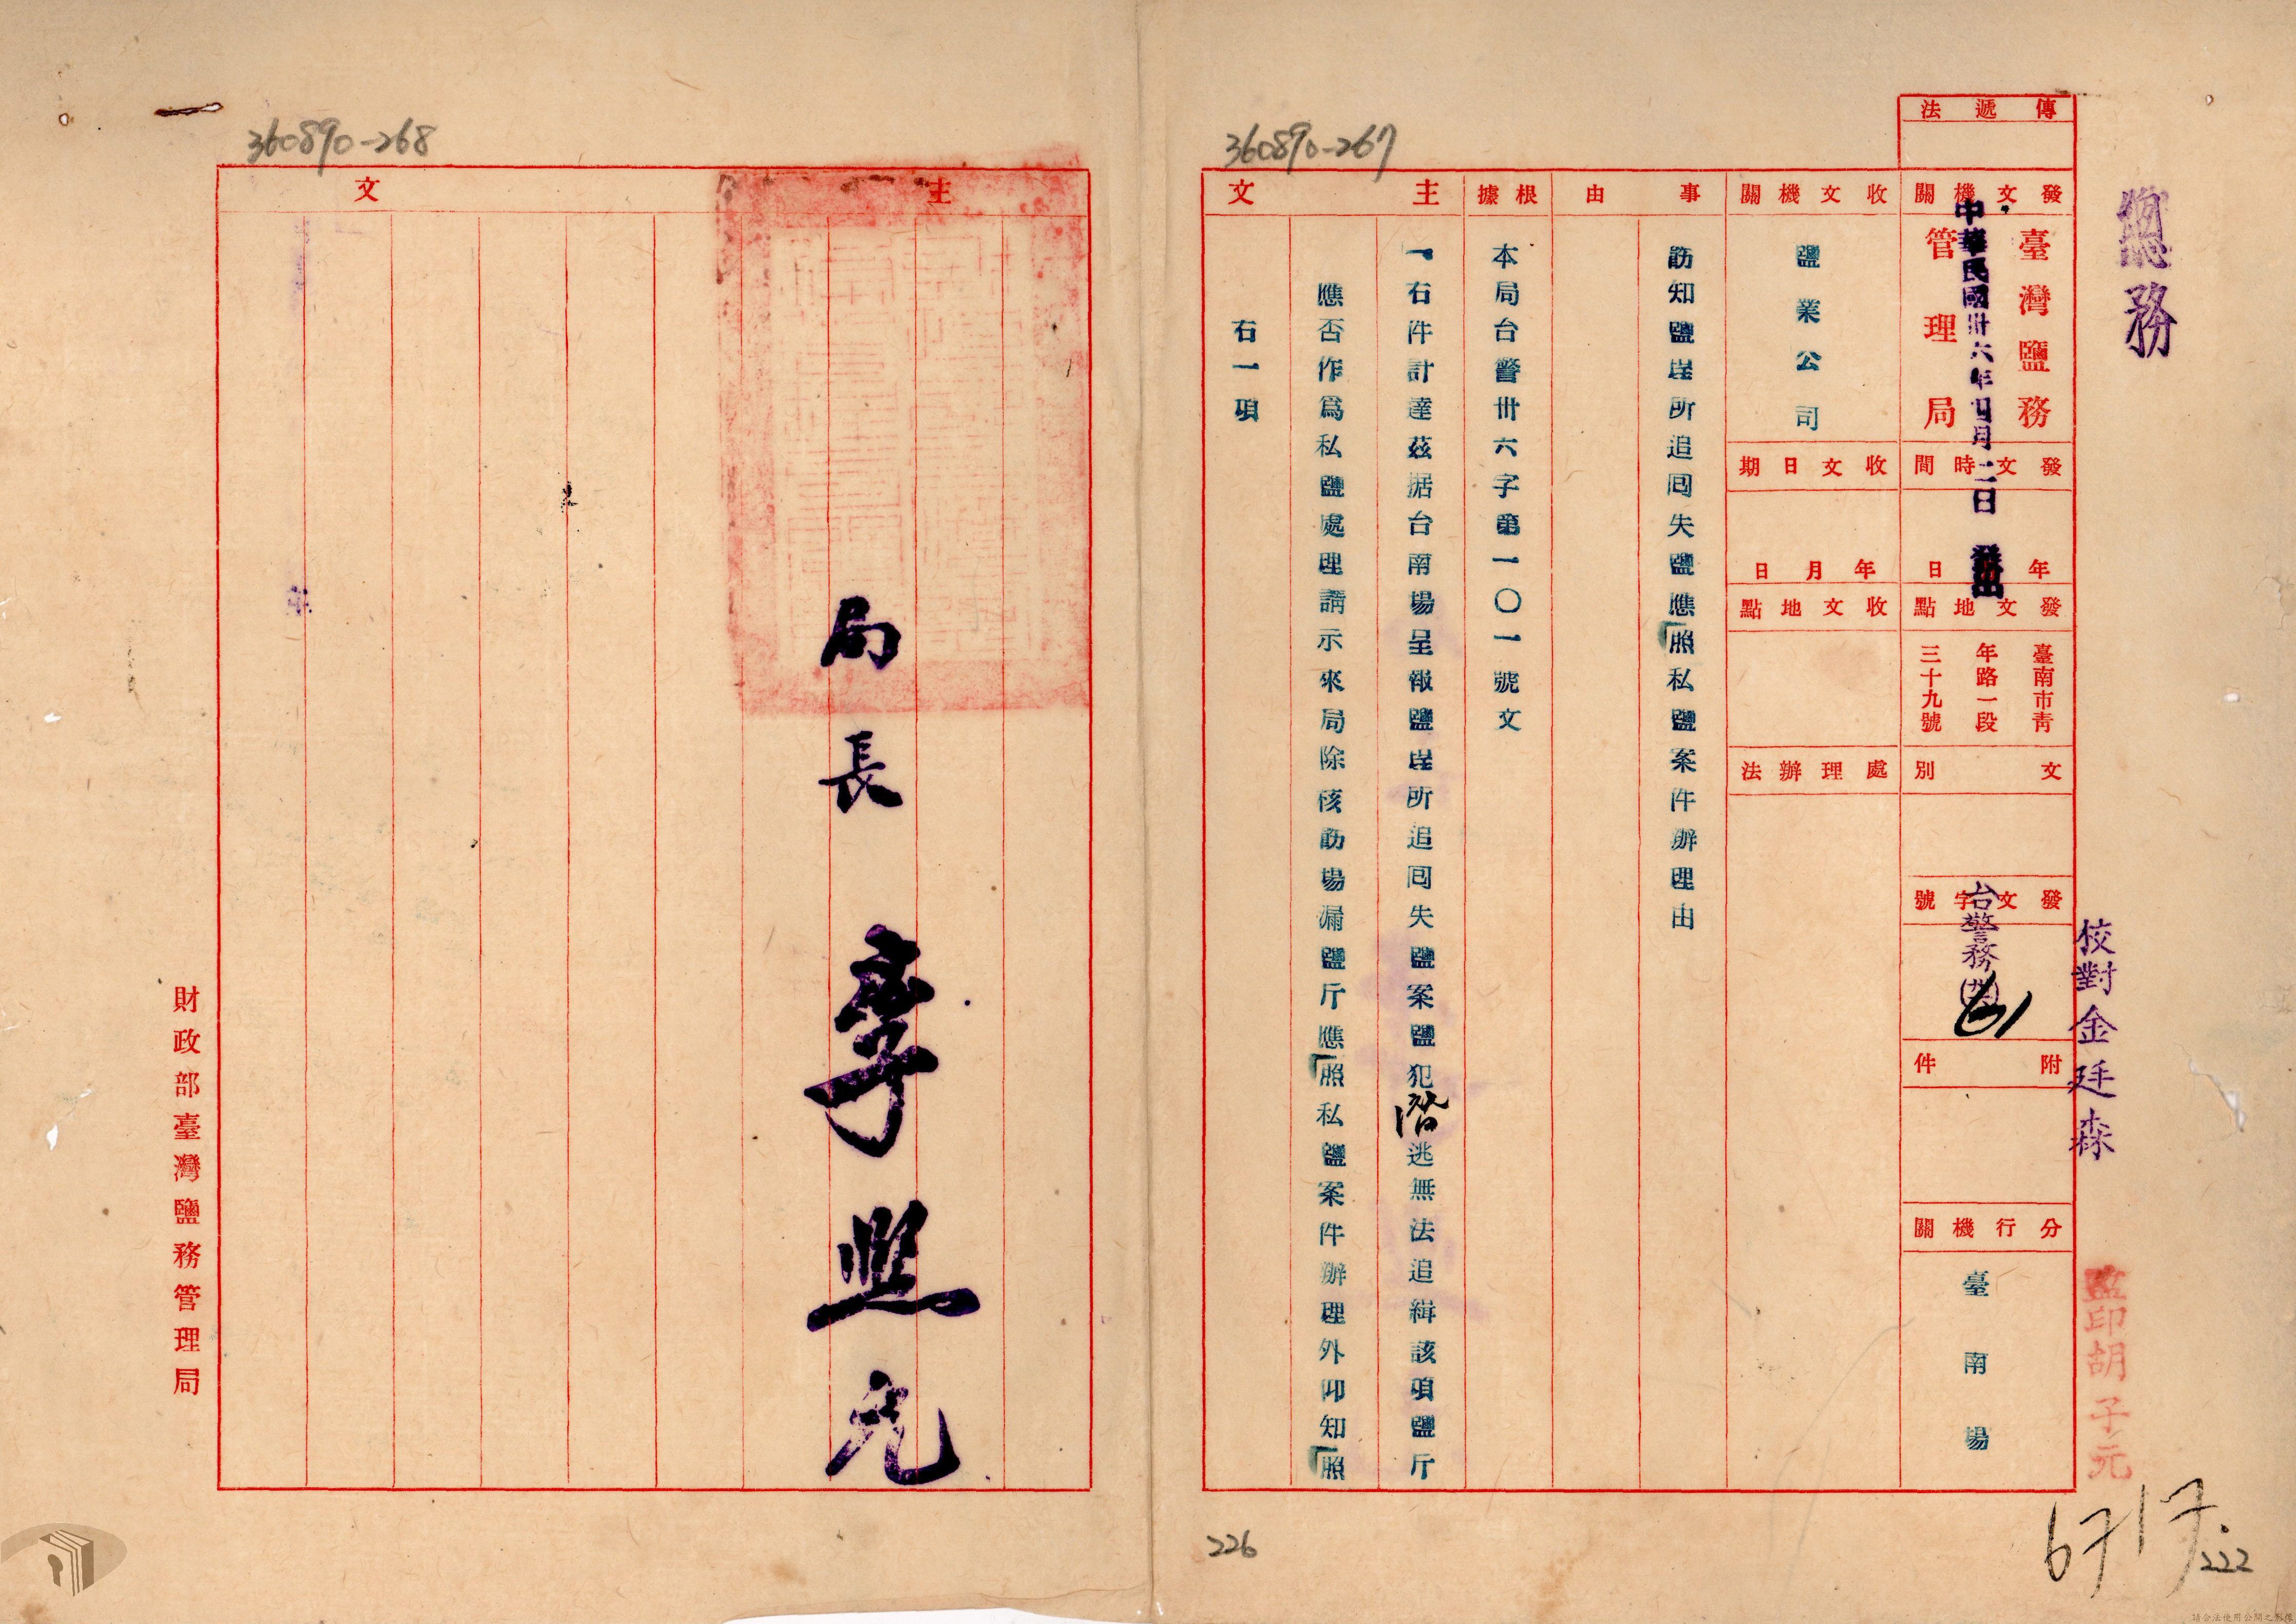 總務
校對金廷森
監印胡子元
傳遞法
發文機關
臺灣鹽務
管理局
中華民國卅六年四月二日
發出
發文時間
年
日
發文地點
臺南市青
年路一段
三十九號
文別
發文字號
台警務
61
附件
分行機關
臺南場
收文機關
鹽業公司
收文日期
年月日
收文地點
處理辦法
事由
飭知鹽崑所追回失鹽應照私鹽案件辦理由
根據
本局台警卅六字第一〇一號文
主文
一右件計達茲据台南場呈報鹽崑所追回失鹽案鹽犯潛逃無法追緝該項鹽斤
應否作爲私鹽處理請示來局除核飭場漏鹽斤應照私鹽案件辦理外仰知照
右一項
360890-267
226
6717
222
360890-268
主文
局長
李照允
財政部臺灣鹽務管理局
請合法使用公開之影像